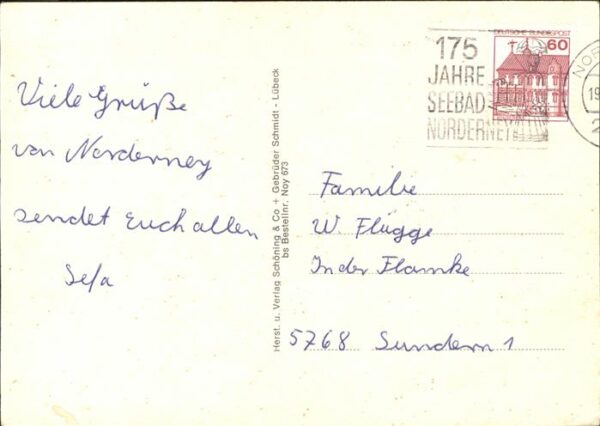 Viele Grüße
von Norderney
sendet Euch allen
Herst. u. Verlag Schöning & Co + Gebrüder Schmidt - Lübeck
bs Bestellnr. Noy 673
175
JAHRE
SEEBAD
NORDERNEY
DEUTSCHE BUNDESPOST
60
NOR
19
2
Familie
W. Flügge
In der Flamke
5768 Sundern 1